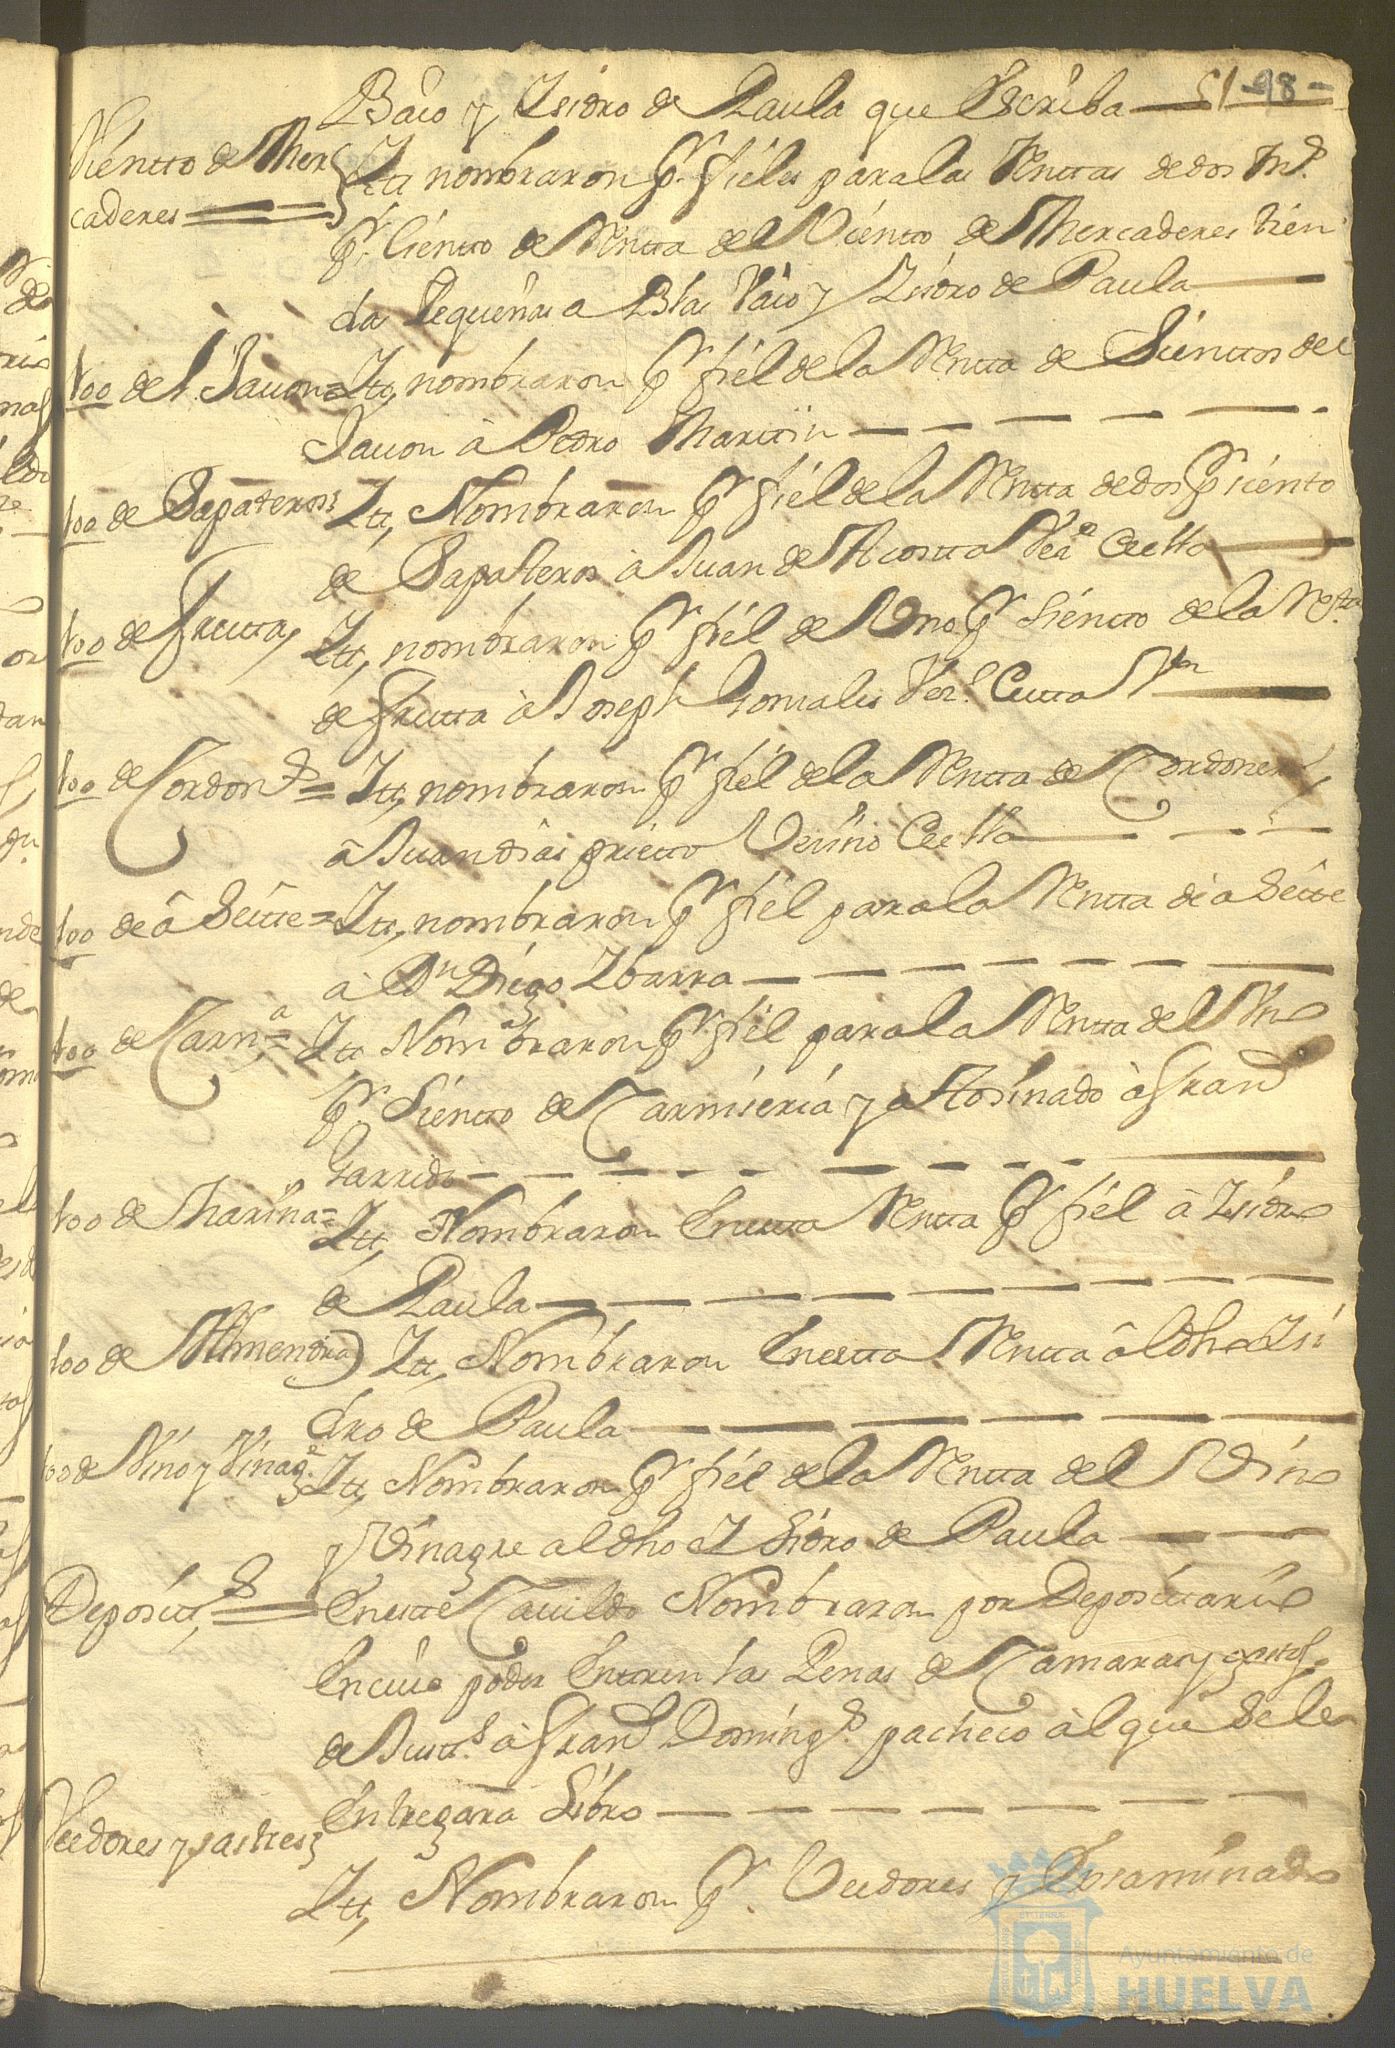 51 - 98 -
Baio y Isidro de Paula que Escriba
Viento de Mer
caderes
Itt nombraron pr. fieles para las Renttas de dos
pr. Ciento de Rentta del Viento de Mercaderes tien
das Pequeñas a Blas Vaio y Isidro de Paula
too del Jauon = Itt, nombraron pr fiel de la Rentta de Sienttos del
Jauon â Pedro Marttin
too de Sapateros Itt, Nombraron pr fiel de la Rentta de dos pr siento
de Sapateros â Juan de Acostta
too de Frutta, Itt, nombraron pr fiel de Uno pr Siento de la Rta
de frutta â Joseph Gonsales
too de Cordons = Itt, nombraron pr fiel de la Rentta de Cordoneros
â Juan dias prietto Vecino
too de â Seitte = Itt, nombraron pr fiel para la Rentta de â Seitte
â Dn Diego Ibarra
too de Carna = Itt, Nombraron pr fiel para la Rentta del
pr Siento de Carniseria y a Tosinado â Franco
Garrido
too de Harina = Itt, Nombraron En estta Rentta pr fiel â Isidro
de Paula
too de Almendra Itt, Nombraron En estta Rentta âl dho Isi
dro de Paula
too de Vino y Vinage Itt, Nombraron pr fiel de la Rentta del Vino
y Vinagre al dho Isidro de Paula
Depositt, = En estte Cauildo Nombraron por Deposittario
En cuio poder Entren las Penas de Camara y gastos
de Justta â Franco Domings. pacheco âl que Se le
Entregara Libro
Veedores y sastres
Itt, Nombraron pr. Veedores y Exsaminados
Ayuntamiento de
HUELVA